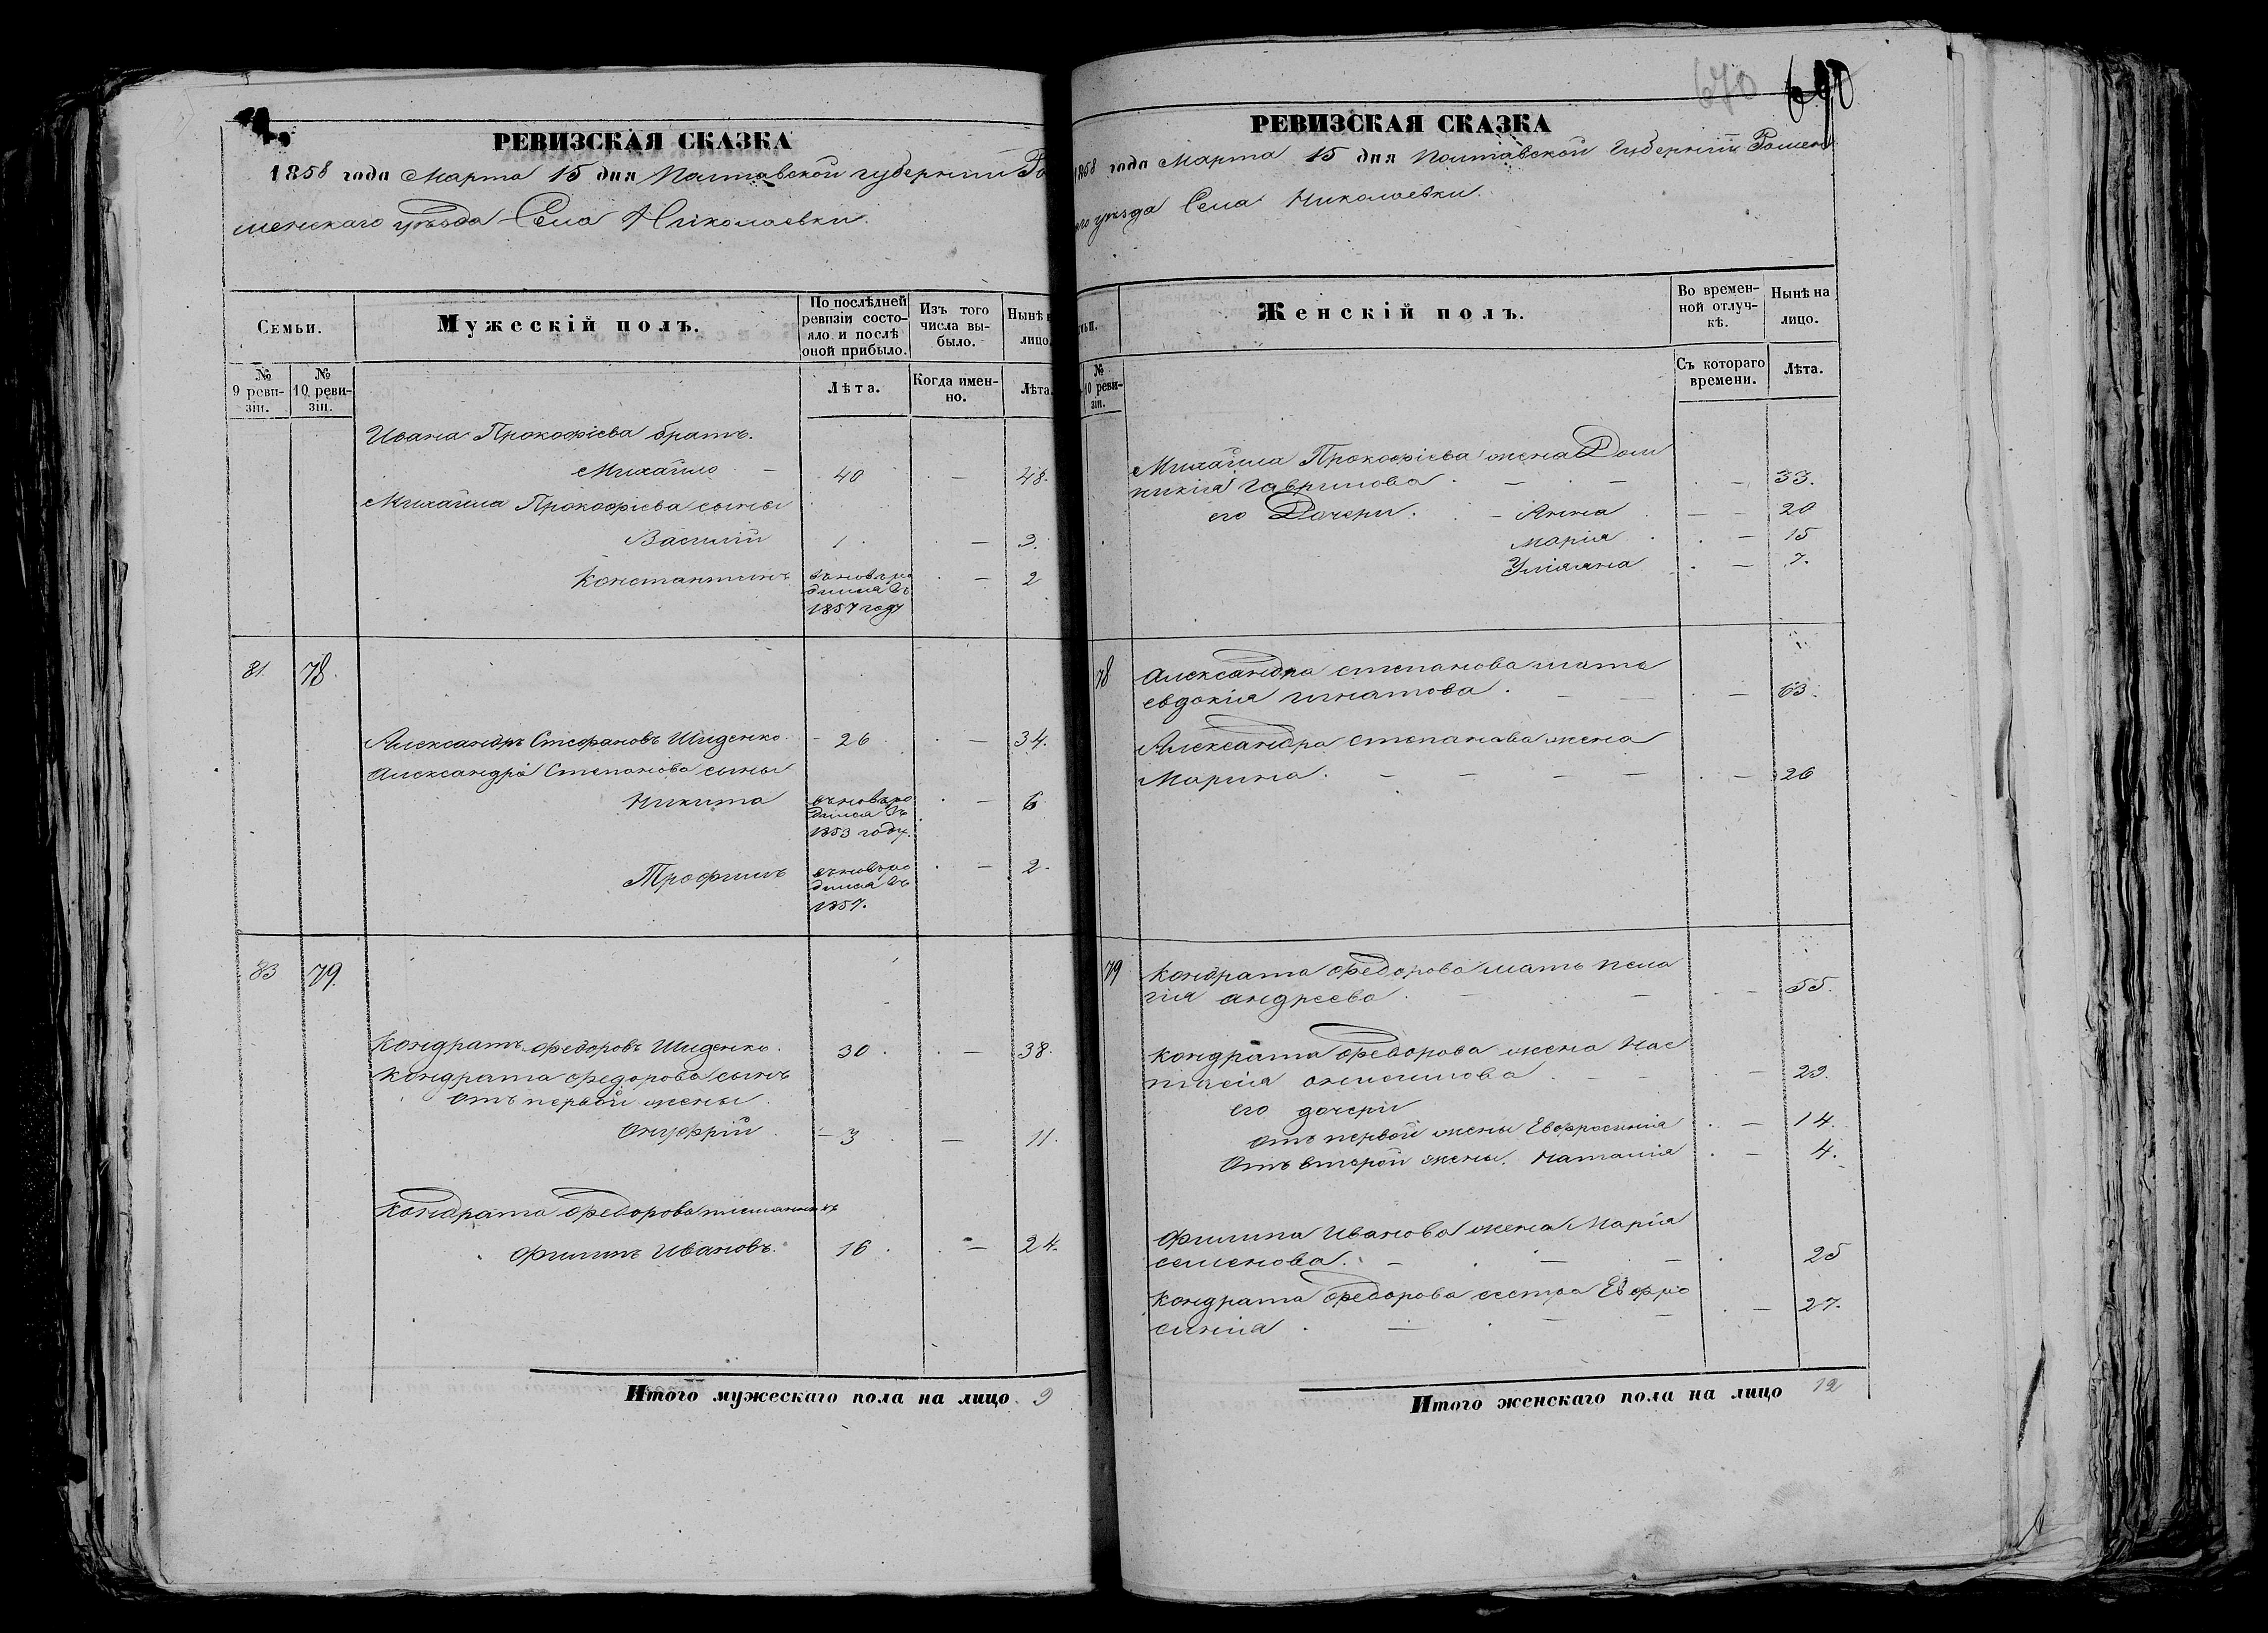 РЕВИЗСКАЯ СКАЗКА
1858 года Марта 15 дня Полтавской губерніи Ро
менскаго уѣзда Села Николаевки.
Семьи.
Мужескій полъ.
По послѣдней ревизіи состояло и послѣ оной прибыло.
Изъ того числа выбыло.
Нынѣ
лицо.
№ 9 ревизіи.
№ 10 ревизіи.
Лѣта.
Когда именно.
Лѣта.
Ивана Прокофіева братъ.
Михайло — 40 — 48.
Михаила Прокофіева сыны
Василій 1 — 9.
Константинъ — 2
1857 году
81. 78.
Александръ Стефановъ Шиденко. 26 — 34.
Александра Степанова сыны
Никита — 6
1853 году.
Трофимъ — 2.
1857.
83 79.
Кондратъ Федоровъ Шиденко. 30. — 38.
Кондрата Федорова сынъ
отъ первой жены
Онуфрій — 3 — 11.
Кондрата Федорова племянникъ
Филипъ Ивановъ. 16. — 24.
Итого мужескаго пола на лицо. 9
670 690
РЕВИЗСКАЯ СКАЗКА
1858 года Марта 15 дня Полтавской Губерніи Ромен
го уѣзда Села Николаевки.
Женскій полъ.
Во временной отлучкѣ.
Нынѣ на лицо.
№ 10 ревизіи.
Съ котораго времени.
Лѣта.
Михаила Прокофіева жена Дом
никія Гаврилова. — 33.
его Дочери. — Анна — 20
Марія — 15
Уліяна — 7.
78 Александра степанова мать
евдокія игнатова. — 63.
Александра степанова жена
Марина. — 26
79 Кондрата Федорова мать пела
гія андреева. — 55.
Кондрата Федорова жена Нас
тасія — 29.
его дочери
отъ первой жены Евфросинія — 14.
Отъ второй жены. Наталія — 4.
Филипа Иванова жена Марія
семенова. — 25
Кондрата Федорова сестра Евфро
синія. — 27.
Итого женскаго пола на лицо 12